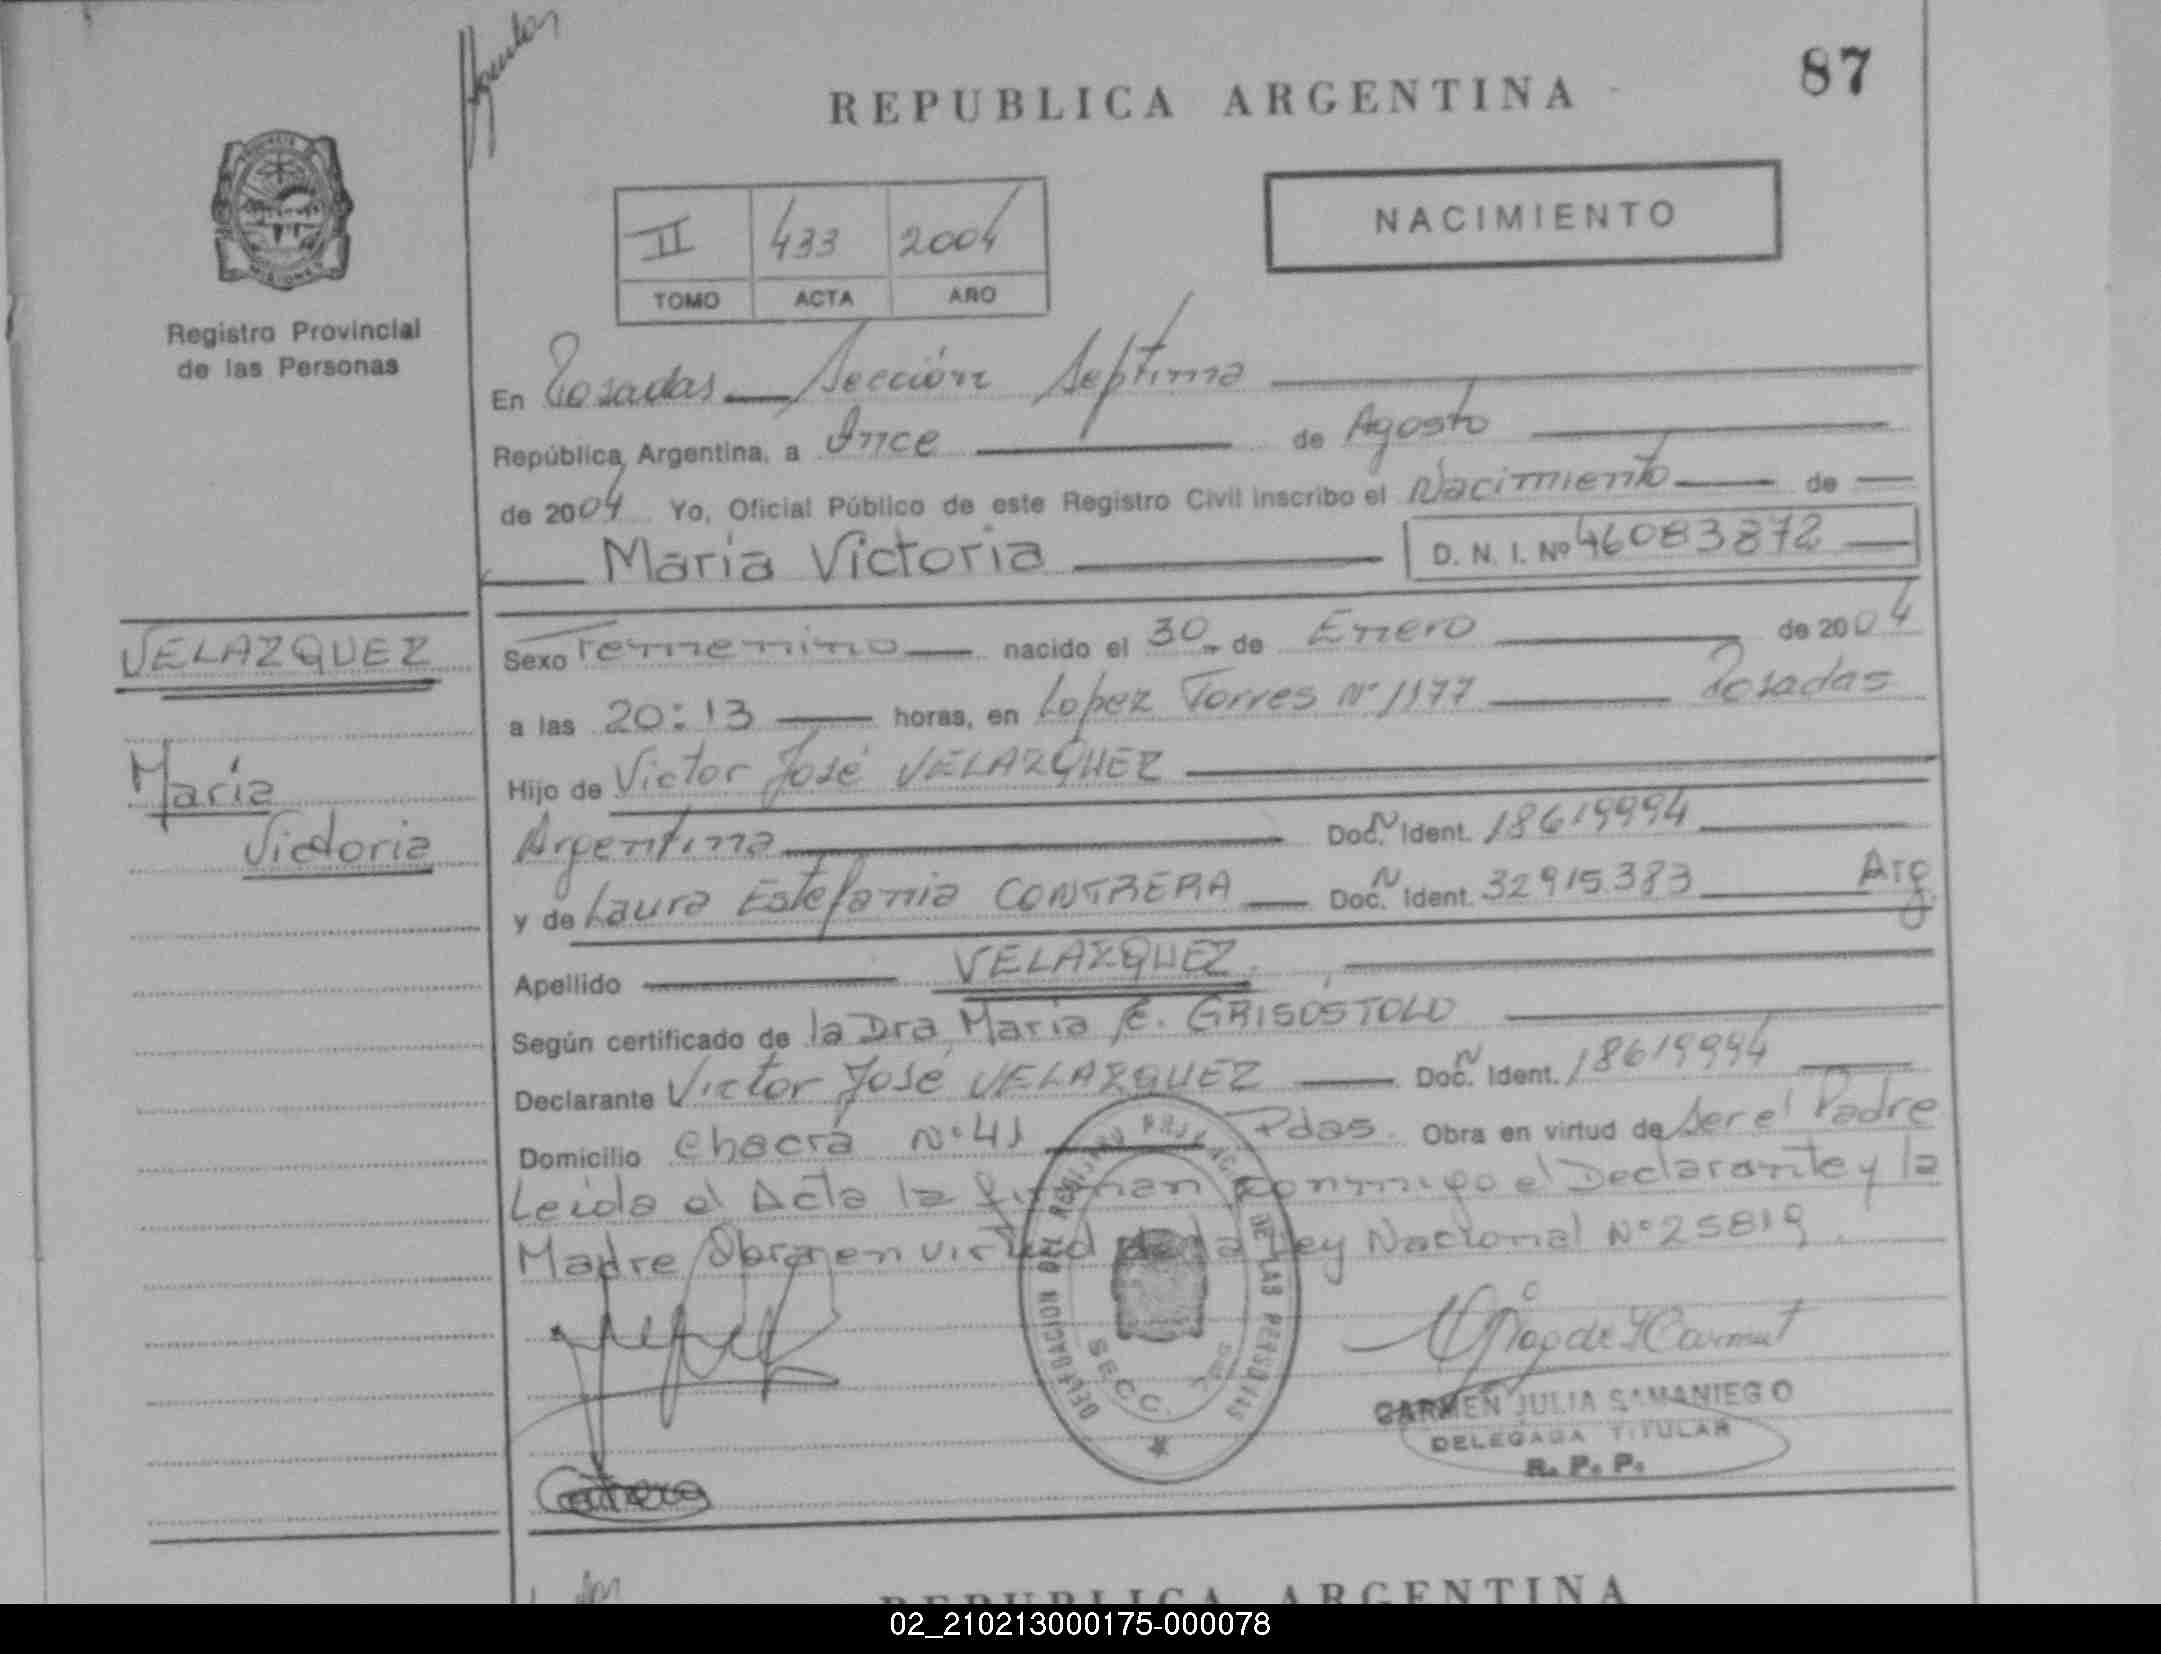 87
REPUBLICA ARGENTINA
NACIMIENTO
II 433 2004
TOMO ACTA AÑO
Registro Provincial
de las Personas
En Posadas — Sección Septima
República Argentina, a Once de Agosto
de 2004 Yo, Oficial Público de este Registro Civil inscribo el Nacimiento — de —
María Victoria D. N. I. Nº 46083872 —
VELAZQUEZ
María
Victoria
Sexo Femenino — nacido el 30 de Enero de 2004
a las 20:13 — horas, en Lopez Torres Nº 1177 — Posadas
Hijo de Victor José VELAZQUEZ
Argentina Doc. N Ident. 18619994
y de Laura Estefania CONTRERA — Doc. N Ident. 32915383 Arg
Apellido VELAZQUEZ
Según certificado de la Dra María E. GRISOSTOLO
Declarante Victor José VELAZQUEZ — Doc. N Ident. 18619994
Domicilio Chacra Nº 41 Pdas. Obra en virtud de ser el Padre
Leida el Acta la firman conmigo el Declarante y la
Madre Obra en virtud de la Ley Nacional Nº 25819.
DELEGACION DEL REGISTRO PROVINCIAL DE LAS PERSONAS
SECC.
CARMEN JULIA SAMANIEGO
DELEGADA TITULAR
R. P. P.
Contrera
REPUBLICA ARGENTINA
02_210213000175-000078